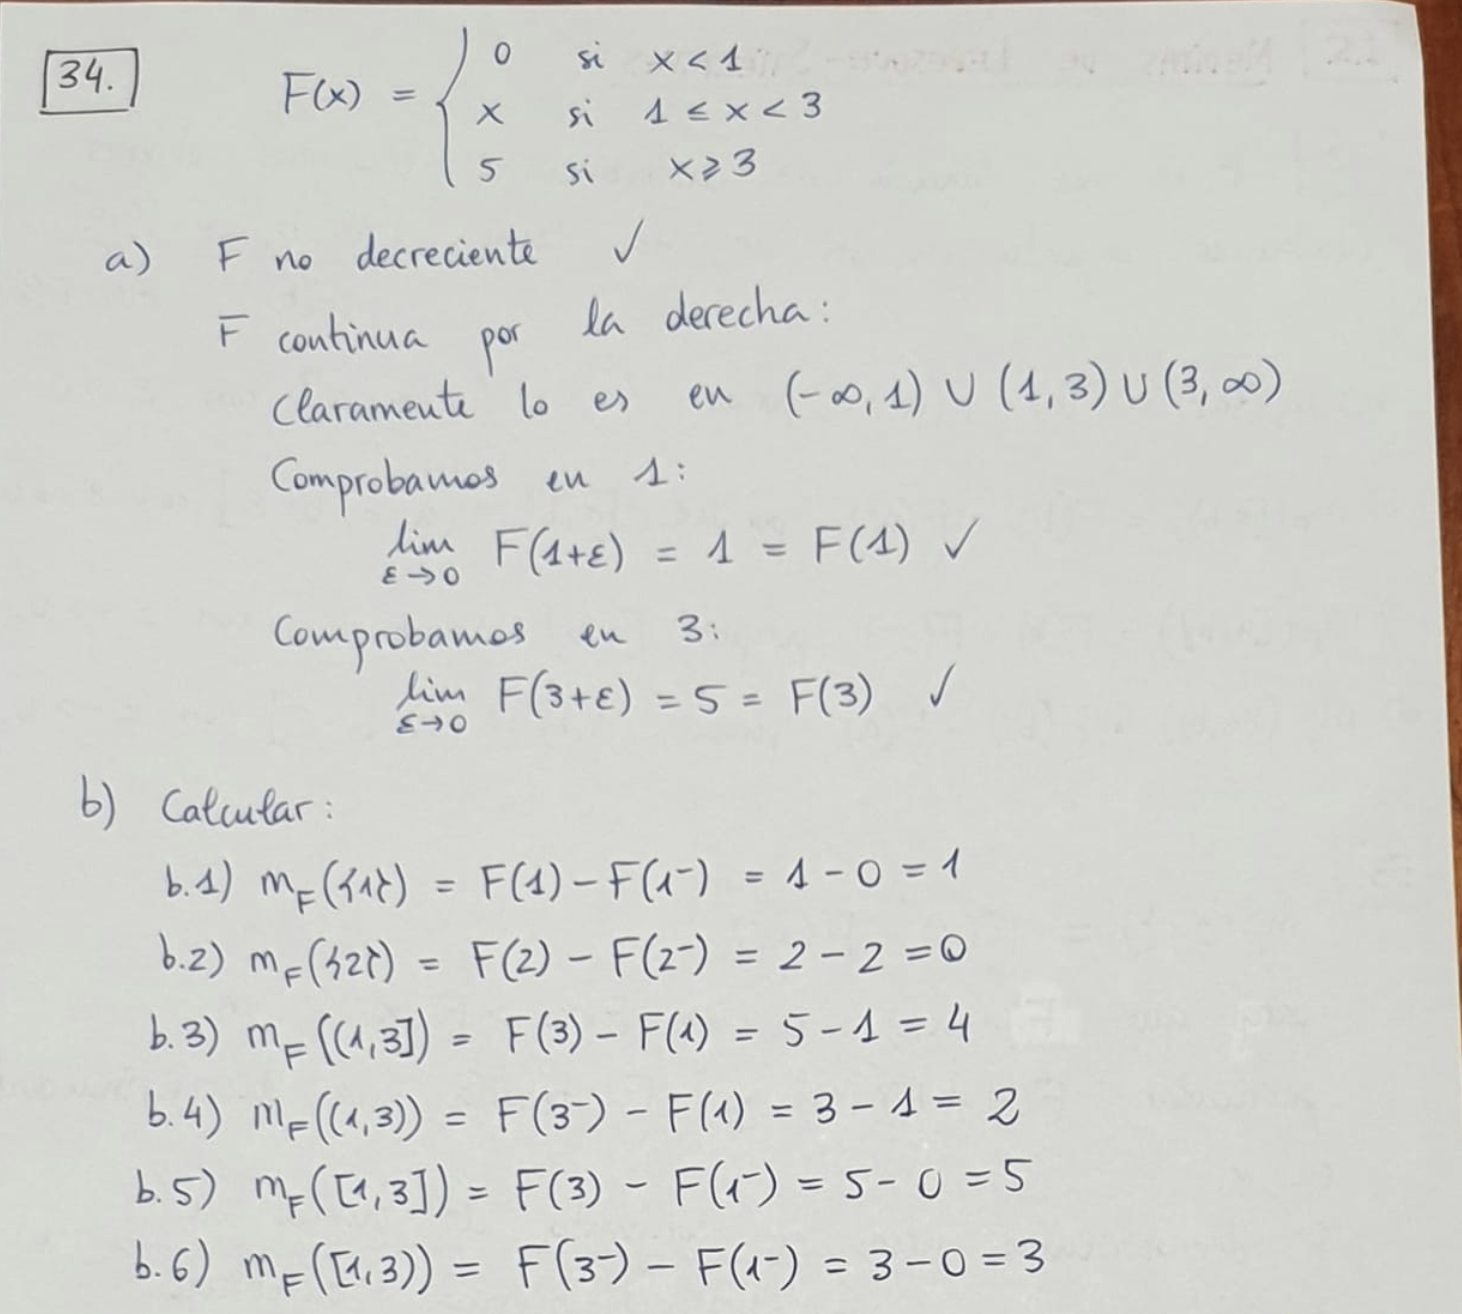 34. F(x) = { 0 si x < 1
x si 1 ≤ x < 3
5 si x ≥ 3
a) F no decreciente ✓
F continua por la derecha:
Claramente lo es en (-∞, 1) ∪ (1, 3) ∪ (3, ∞)
Comprobamos en 1:
lim F(1+ε) = 1 = F(1) ✓
ε→0
Comprobamos en 3:
lim F(3+ε) = 5 = F(3) ✓
ε→0
b) Calcular:
b.1) m_F({1}) = F(1) - F(1⁻) = 1 - 0 = 1
b.2) m_F({2}) = F(2) - F(2⁻) = 2 - 2 = 0
b.3) m_F((1,3]) = F(3) - F(1) = 5 - 1 = 4
b.4) m_F((1,3)) = F(3⁻) - F(1) = 3 - 1 = 2
b.5) m_F([1,3]) = F(3) - F(1⁻) = 5 - 0 = 5
b.6) m_F([1,3)) = F(3⁻) - F(1⁻) = 3 - 0 = 3